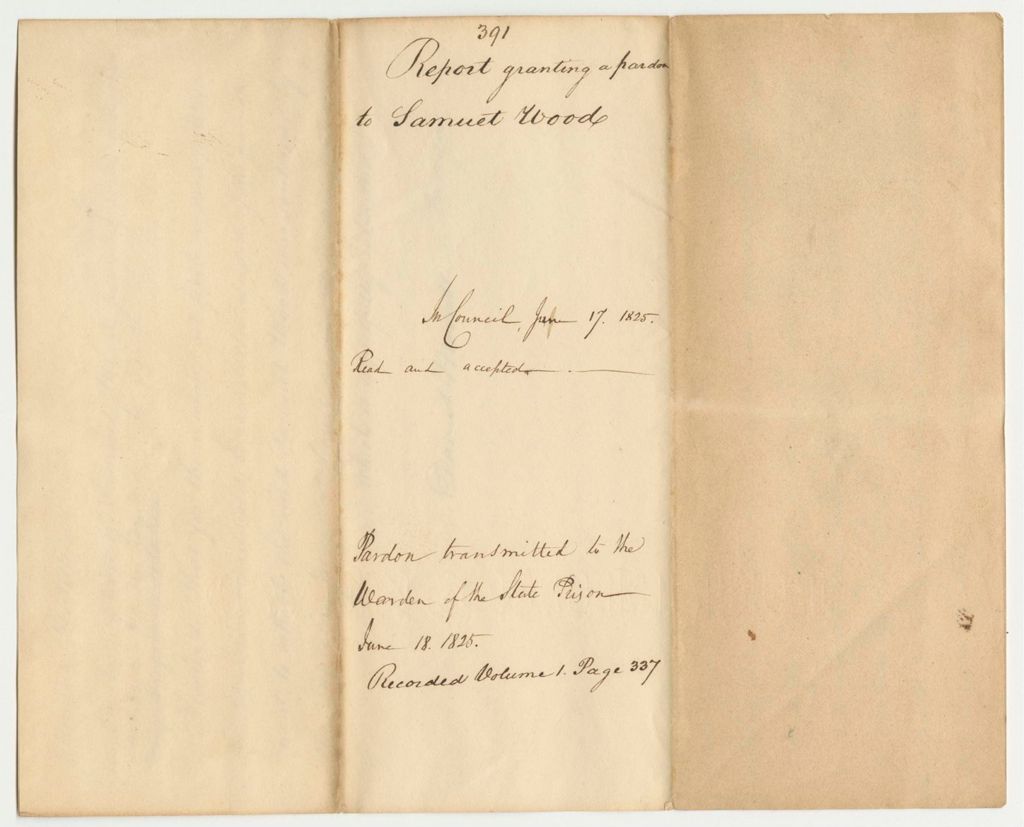 391
Report granting a pardon
to Samuel Wood
In Council, June 17. 1825.
Read and accepted.
Pardon transmitted to the
Warden of the State Prison
June 18. 1825.
Recorded Volume 1. Page 337